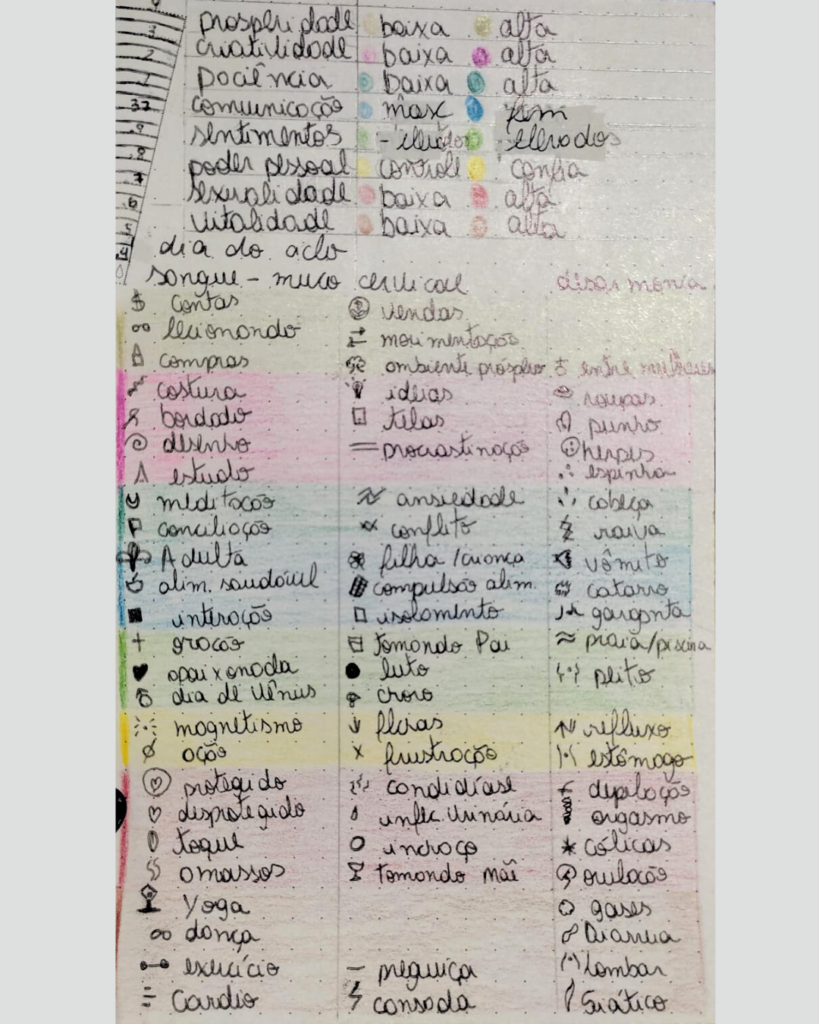 9
3
2
1
32
9
8
7
6
5
4
prosperidade baixa alta
criatividade baixa alta
paciência baixa alta
comunicação masc fem
sentimentos - elevados elevados
poder pessoal controle confia
sexualidade baixa alta
vitalidade baixa alta
dia do ciclo
sangue - muco cervical desarmonia
$ contas $ vendas
lecionando movimentação
compras ambiente próspero entre mulheres
costura ideias roupas
bordado telas punho
desenho procrastinação herpes
estudo espinha
meditação ansiedade cabeça
P conciliação conflito raiva
Adulta filha/criança vômito
alim. saudável compulsão alim. catarro
interação isolamento garganta
gratidão tomando Pai praia/piscina
apaixonada luto peito
dia de Vênus choro
magnetismo flores refluxo
ação x frustração estômago
protegido candidíase depilação
desprotegido infec. urinária orgasmo
toque inchaço * cólicas
amassos tomando mãe ovulação
Yoga gases
dança Diarreia
exercício preguiça lombar
Cardio cansada Ciático